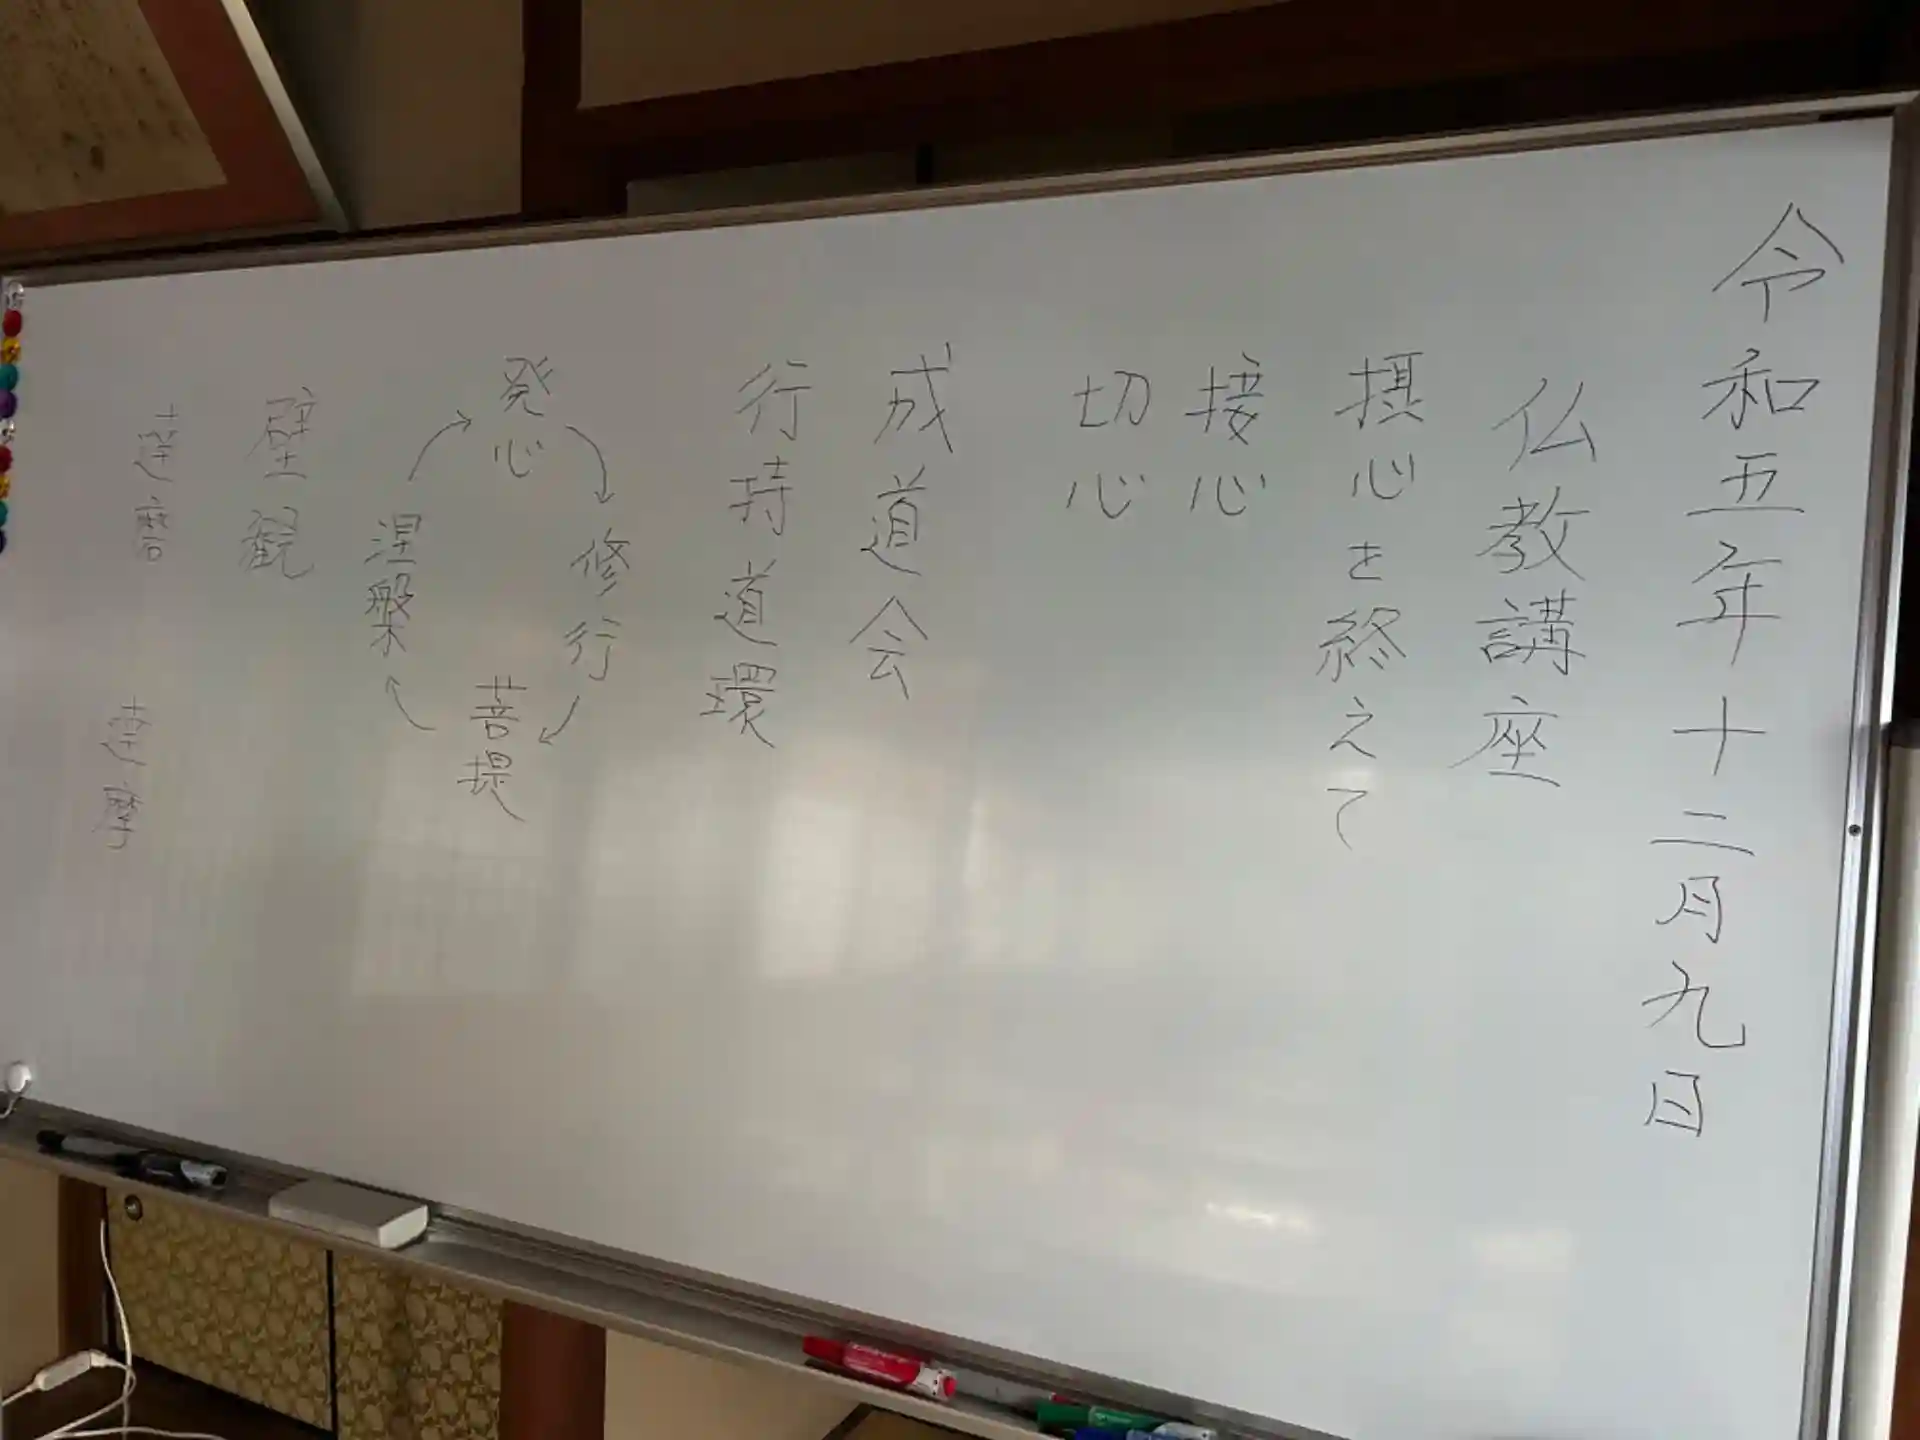 令和五年十二月九日
仏教講座
摂心を終えて
接心
切心
成道会
行持道環
発心
修行
菩提
涅槃
壁観
達磨
達摩